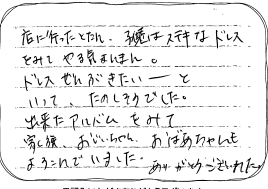 店に行ったとたん、子供達はステキなドレス
をみてやる気まんまん。
ドレスぜんぶきたいーと
いって、たのしそうでした。
出来たアルバムをみて
家族、おじいちゃん、おばあちゃんも
よろこんでいました。ありがとうございました。